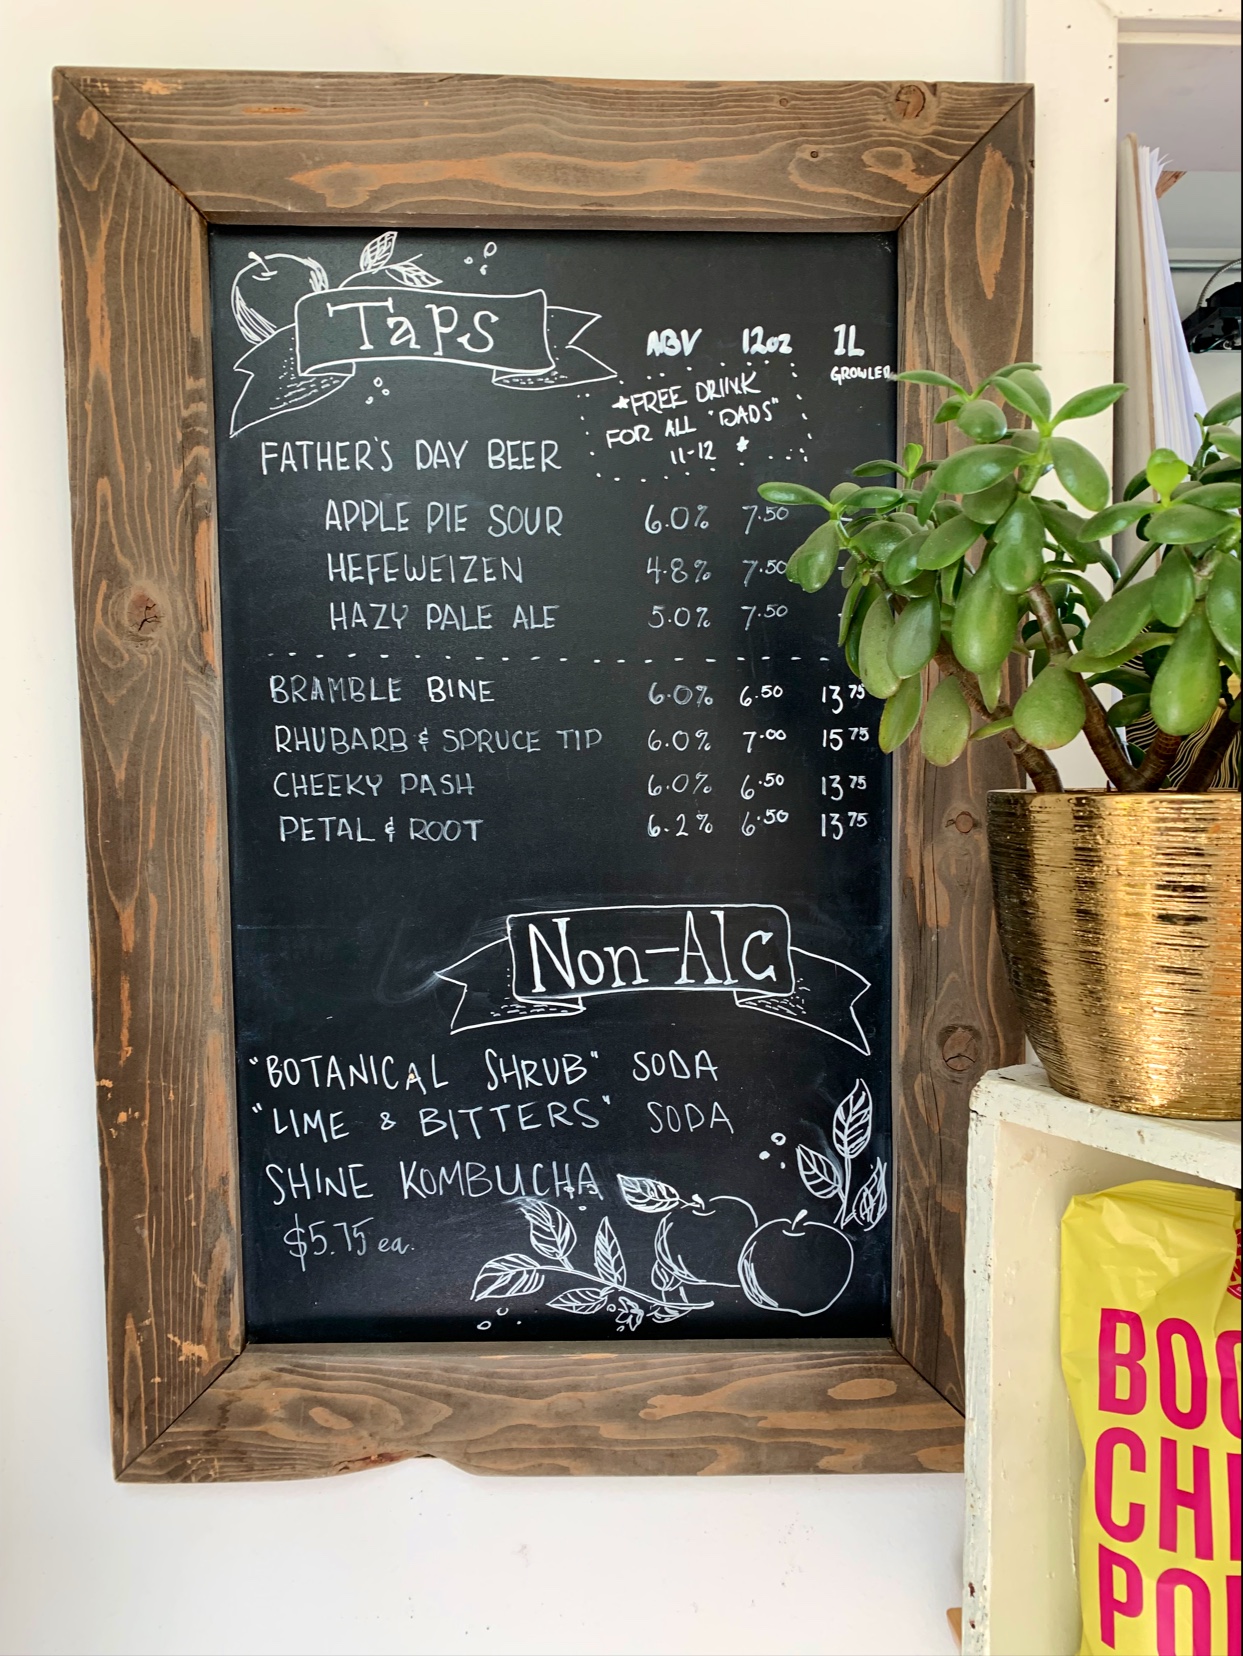 Taps
ABV 12oz 1L
GROWLER
*FREE DRINK
FOR ALL "DADS"
11-12 *
FATHER'S DAY BEER
APPLE PIE SOUR 6.0% 7.50 -
HEFEWEIZEN 4.8% 7.50 -
HAZY PALE ALE 5.0% 7.50 -
BRAMBLE BINE 6.0% 6.50 13 75
RHUBARB & SPRUCE TIP 6.0% 7.00 15 75
CHEEKY PASH 6.0% 6.50 13 75
PETAL & ROOT 6.2% 6.50 13 75
Non-Alc
"BOTANICAL SHRUB" SODA
"LIME & BITTERS" SODA
SHINE KOMBUCHA
$5.75 ea.
BOO
CH
PO